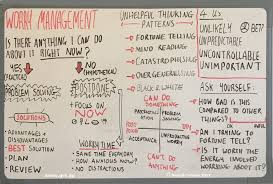 WORRY MANAGEMENT
IS THERE ANYTHING I CAN DO
ABOUT IT RIGHT NOW?
YES
(PRACTICAL)
NO
(HYPOTHETICAL)
PROBLEM SOLVING
POSTPONE
FOCUS ON
NOW
SOLUTIONS
ADVANTAGES +
DISADVANTAGES
BEST SOLUTION
PLAN
REVIEW
WORRY TIME
SAME TIME EVERYDAY
HOW ANXIOUS NOW?
NO DISTRACTIONS
UNHELPFUL THINKING
PATTERNS
FORTUNE TELLING
MIND READING
CATASTROPHISING
OVER GENERALISING
BLACK & WHITE
CAN DO
SOMETHING
CAN'T DO
ANYTHING
4 Us
UNLIKELY
BET?
UNPREDICTABLE
UNCONTROLLABLE
UNIMPORTANT
ASK YOURSELF:
HOW BAD IS THIS
COMPARED TO OTHER
THINGS?
AM I TRYING TO
FORTUNE TELL?
IS IT WORTH THE
ENERGY INVOLVED
WORRYING ABOUT IT?